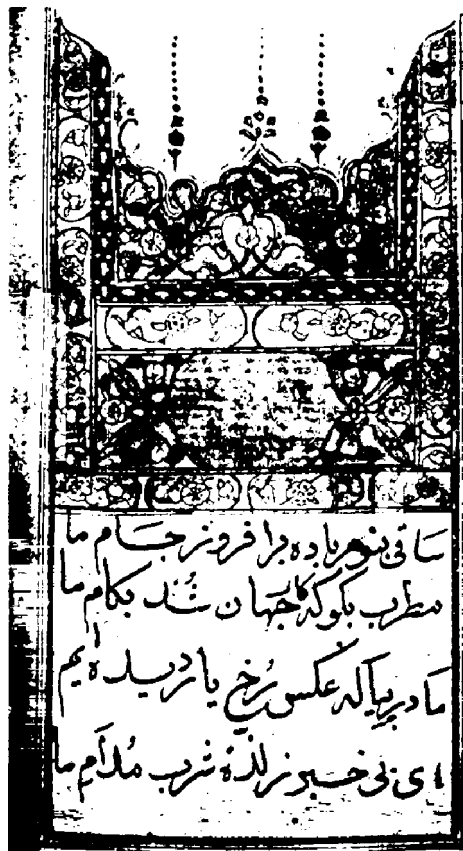 ساقی بنور باده برافروز جام ما
مطرب بگو که کار جهان شد بکام ما
ما در پیاله عکس رخ یار دیده ایم
ای بی خبر ز لذة شرب مدام ما